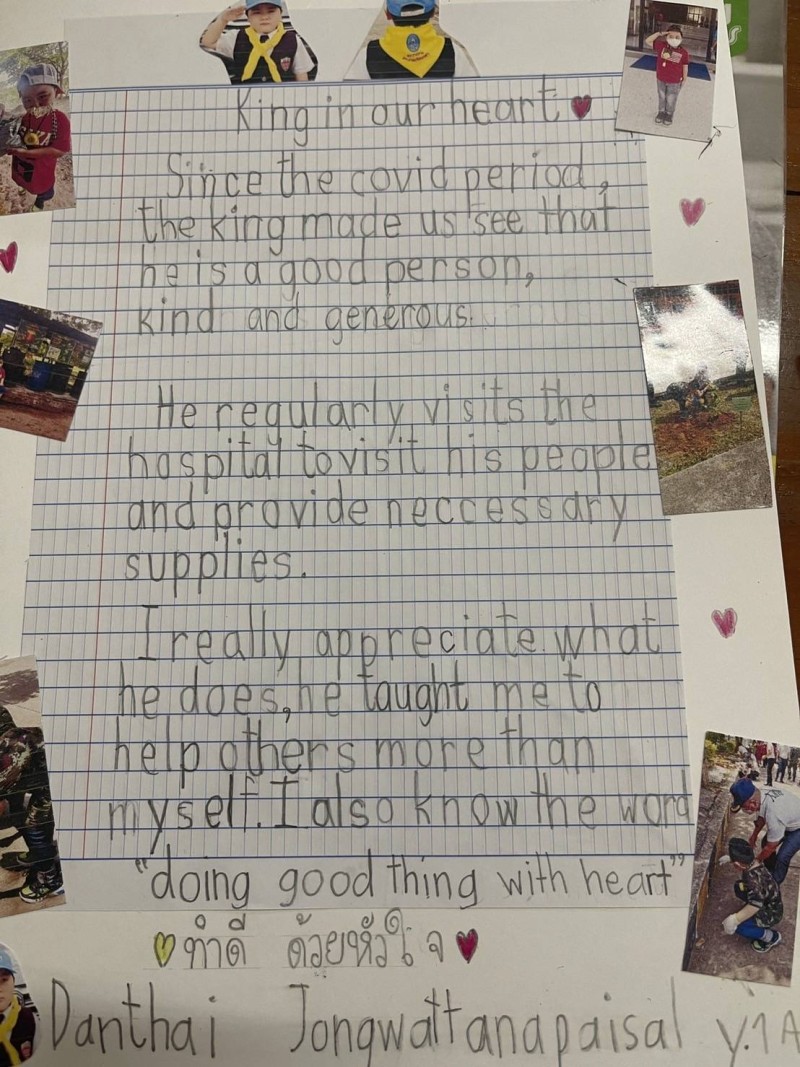 King in our heart
Since the covid period,
the king made us see that
he is a good person,
kind and generous.
He regularly visits the
hospital to visit his people
and provide neccessary
supplies.
I really appreciate what
he does, he taught me to
help others more than
myself. I also know the word
"doing good thing with heart"
ทำดี ด้วยหัวใจ
Danthai Jongwattanapaisal y.1A